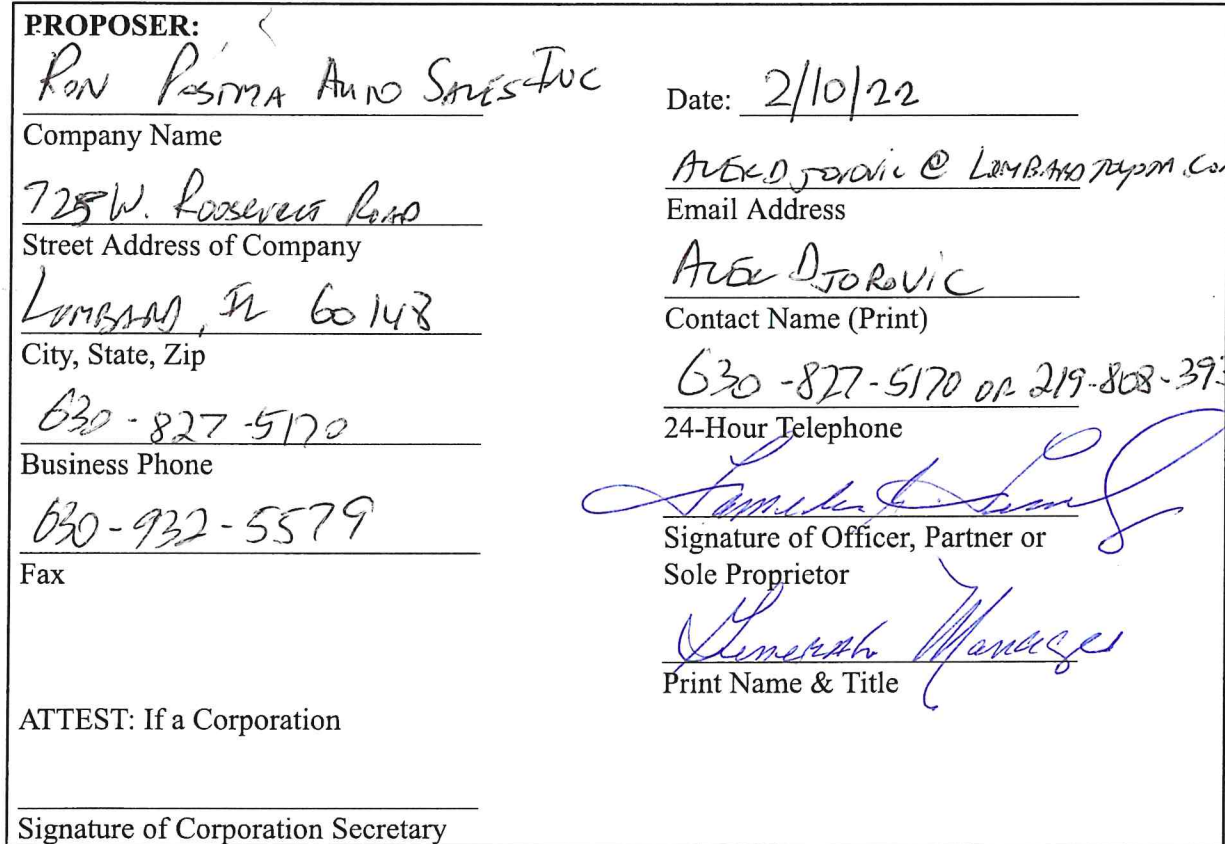 PROPOSER:
RON POSTMA AUTO SALES INC
Company Name
725 W. ROOSEVELT ROAD
Street Address of Company
LOMBARD, IL 60148
City, State, Zip
630-827-5170
Business Phone
630-932-5579
Fax
ATTEST: If a Corporation
Signature of Corporation Secretary
Date: 2/10/22
ALEKDJOROVIC@LOMBARDTOYOTA.CO
Email Address
ALEK DJOROVIC
Contact Name (Print)
630-827-5170 OR 219-808-393
24-Hour Telephone
Signature of Officer, Partner or
Sole Proprietor
General Manager
Print Name & Title